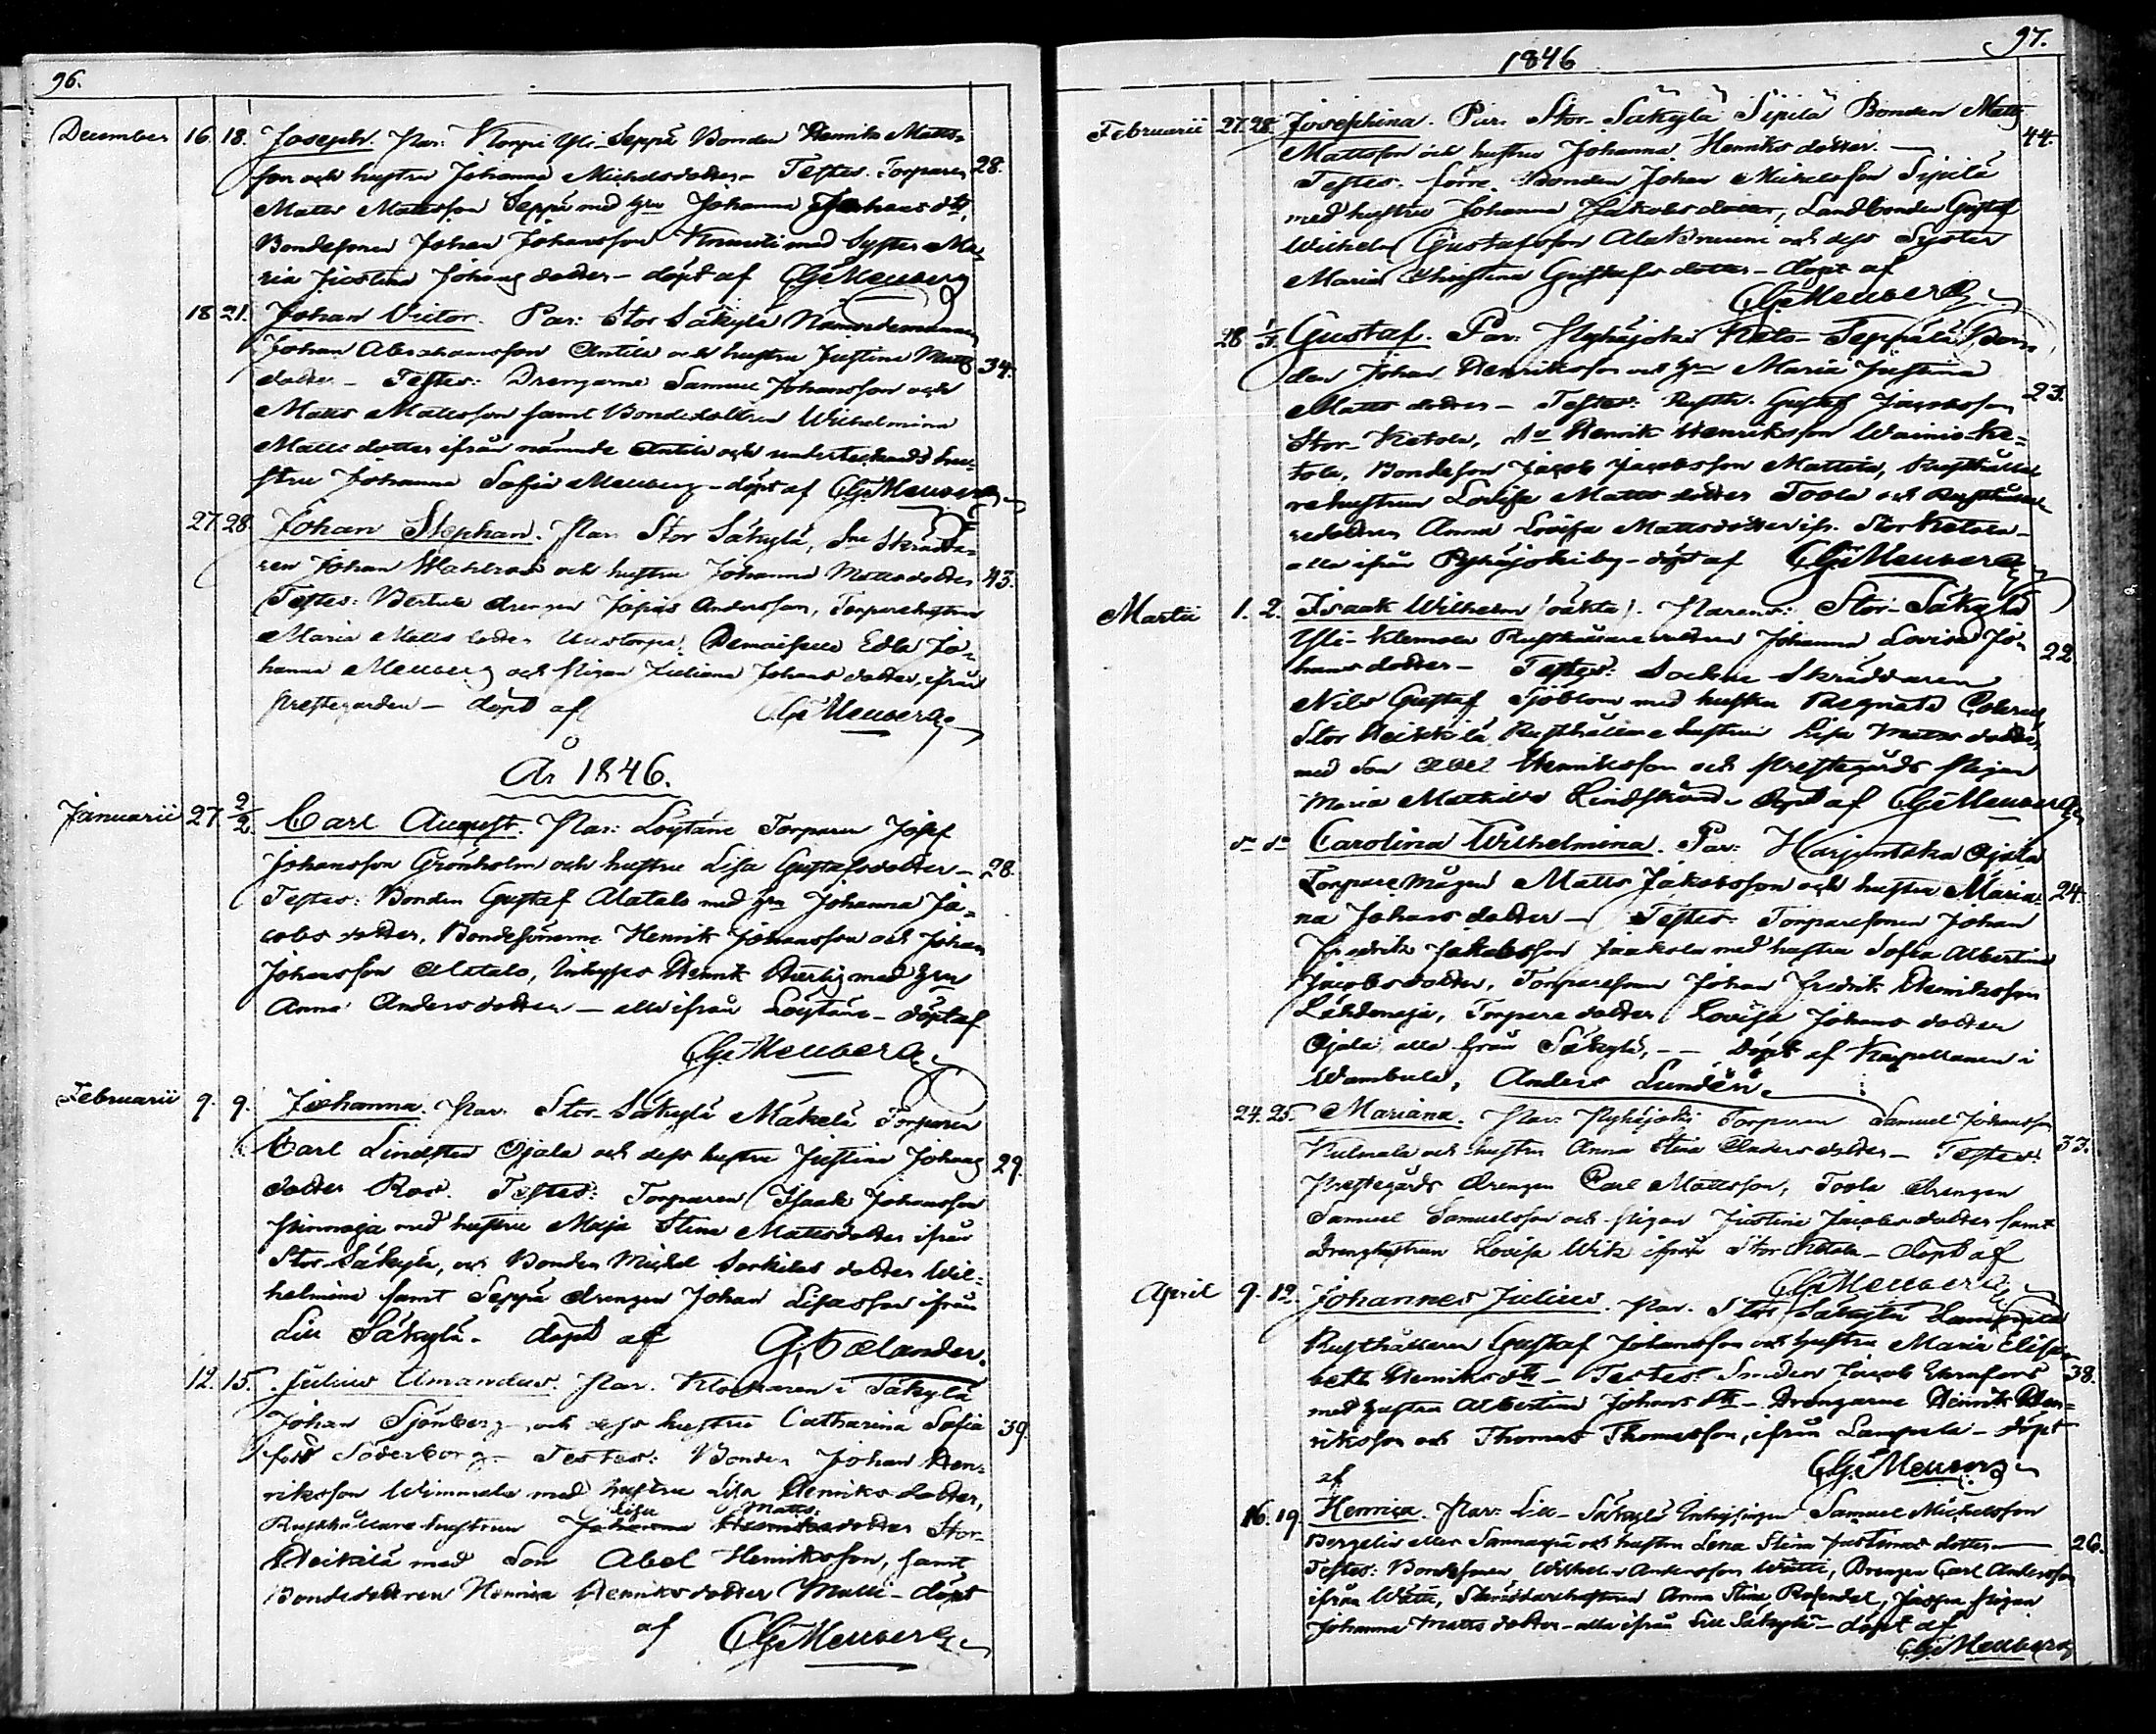 96.
December 16. 18. Joseph. Par: Korpi Yli-Seppä Bonden Henrik Matts-
son och hustru Johanna Michelsdotter - Testes: Torparen 28.
Matts Mattsson Seppä med hru Johanna Johansdtr,
Bondesonen Johan Johansson med Syster Ma-
ria Justina Johansdotter - döpt af CG Meuberg
18 21. Johan Victor. Par: Stor Säkylä Nämndemannen
Johan Abrahamsson Antila och hustru Justina Matts 34.
dotter - Testes: Drengarne Samuel Johansson och
Matts Mattsson samt Bondedottren Wilhelmina
Mattsdotter ifrån nämnde Antila och undertecknads hu-
stru Johanna Sofia Meuberg - döpt af CG Meuberg
27. 28. Johan Stephan. Par: Stor Säkylä, Sne Skrädda-
ren Johan och hustru Johanna Mattsdotter 43.
Testes: drengen Josias Andersson, Torparehustrun
Maria Matts dotter Uusitorpa, Demoiselle Edla Jo-
hanna Meuberg och pigan Juliana Johans dotter, ifrån
Prestegården - döpt af CG Meuberg
År 1846.
Januarii 27. 2/2. Carl August. Par: Löytäne Torparen Josef
Johansson Grönholm och hustru Lisa Gustafsdotter - 28.
Testes: Bonden Gustaf Alatalo med hru Johanna Ja-
cobs dotter, Bondesönerne Henrik Johansson och Johan
Johansson Alatalo, Inhyses Henrik Härlig med hru
Anna Andersdotter - alla ifrån Löytäne - döpt af
CG Meuberg
Februarii 9. 9. Johanna. Par: Stor-Säkylä Mäkelä Torparen
Carl Lindsten Ojala och dess hustru Justina Johans 29.
dotter Ros. Testes: Torparen Isaak Johansson
med hustru Maja Stina Mattsdotter ifrån
Stor-Säkylä, och Bonden Michel Sorkilas dotter Wil-
helmina samt Seppä drengen Johan Lisasson ifrån
Lill Säkylä - döpt af G. Palander.
12. 15. Julius Amandus. Par: Klockaren i Säkylä
Johan Sjönberg och dess hustru Catharina Sofia 39.
född Söderborg - Testes: Bonden Johan Hen-
riksson Wimmala med hustru Lisa Henriks dotter,
Lisa Matts
Rusthållare hustrun Johanna Henriksdotter Stor-
Heikkilä med Son Abel Henriksson, samt
Bondedottren Henrica Henriksdotter - döpt
af CG Meuberg
1846
97.
Februarii 27. 28. Josephina. Par: Stor-Säkylä Sipilä Bonden Matts 44.
Mattsson och hustru Johanna Henriks dotter. -
Testes: förre Bonden Johan Michelsson Sipilä
med hustru Johanna Jakobsdotter, Landbonden Gustaf
Wilhelm Gustafsson och dess Syster
Maria Christina Gustafsdotter - döpt af
CG Meuberg
28 1/3. Gustaf. Par: Pyhäjoki Keto-Seppälä Bon-
den Johan Henriksson och hru Maria Justina
Matts dotter - Testes: Rusth. Gustaf Jacobsson 23.
Stor-Ketola, do Henrik Henriksson Wainio-Ke-
tola, Bondeson Jacob Jacobsson Mattila, Rusthålla-
rehustrun Lovisa Matts dotter Toola och Rusthålla-
redottren Anna Lovisa Mattsdotter ifr. Stor Ketola -
alla ifrån Pyhäjoki by - döpt af CG Meuberg
Martii 1. 2. Isaak Wilhelm (oäkta). Parens: Stor-Säkylä
Yli-Klemola Rusthållaredottren Johanna Lovisa Jo- 22
hans dotter - Testes: Sockne Skräddaren
Nils Gustaf Sjöblom med hustru Regnata
Stor Heikkilä Rusthållare hustrun Lisa Matts dotter,
med Son Abel Henriksson och Prestegårds Pigan
Maria Mathilda Lindstrand - döpt af CG Meuberg
do do Carolina Wilhelmina. Par: Harjuntaka Ojala
Torpare mågen Matts Jakobsson och hustru Maria- 24
na Johans dotter - Testes: Torparesonen Johan
Fredrik Jakobsson Jaakola med hustru Sofia Albertina
Jacobsdotter, Torparesonen Johan Fredrik Henriksson
Lähdenoja, Torpare dotter Lovisa Johans dotter
Ojala, alla från Säkylä, -- döpt af Kapellanen i
Wambula, Anders Lundén.
24. 25. Mariana. Par: Pyhäjoki Torparen Samuel Johansson
Kulmala och hustru Anna Stina Andersdotter - Testes: 33.
Prestegårds drengen Carl Mattsson, Toola drengen
Samuel Samuelsson och pigan Justina Jacobsdotter samt
drenghustrun Lovisa Wik ifrån Stor Ketola - döpt af
CG Meuberg
April 9. 12. Johannes Julius. Par. Stor Säkylä Lampola
Rusthållaren Gustaf Johansson och hustru Maria Elisa-
beth Henriksdtr - Testes: Smeden Jacob Ekenfors 38.
med hustru Albertina Johansdtr - Drengarne Henrik Hen-
riksson och Thomas Thomasson, ifrån Lampola - döpt
af CG Meuberg
16. 19 Henrica. Par: Lill-Säkylä Inhysingen Samuel Michelsson
Bergelin eller Sammaja och hustru Lena Stina Justinas dotter - 26.
Testes: Bondesonen Wilhelm Andersson Wätti, Drengen Carl Andersson
ifrån Wätti, Skräddarehustrun Anna Stina Rosendal, pigan
Johanna Matts dotter - alla ifrån Lill Säkylä - döpt af
CG Meuberg